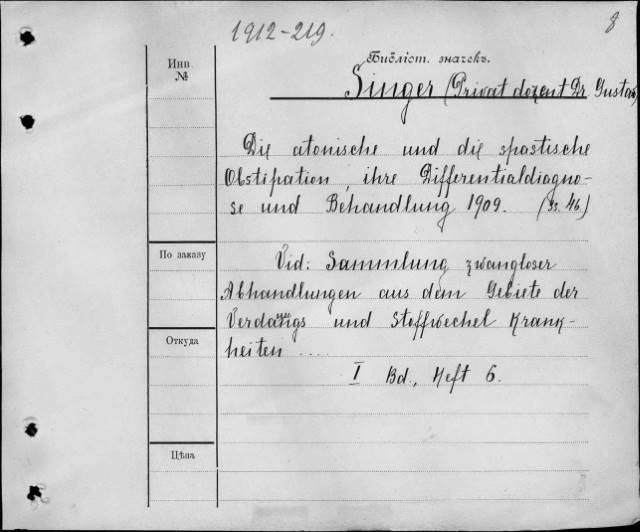 1912-219.
8
Инв.
№
Бібліот. значекъ.
Singer (Privat dozent Dr. Gustav)
Die atonische und die spastische
Obstipation, ihre Differentialdiagno-
se und Behandlung 1909. (SS. 46)
По заказу
Vid: Sammlung zwangloser
Abhandlungen aus dem Gebiete der
Verdauungs und Stoffwechel Krank-
heiten ....
Откуда
I Bd., Heft 6.
Цѣна